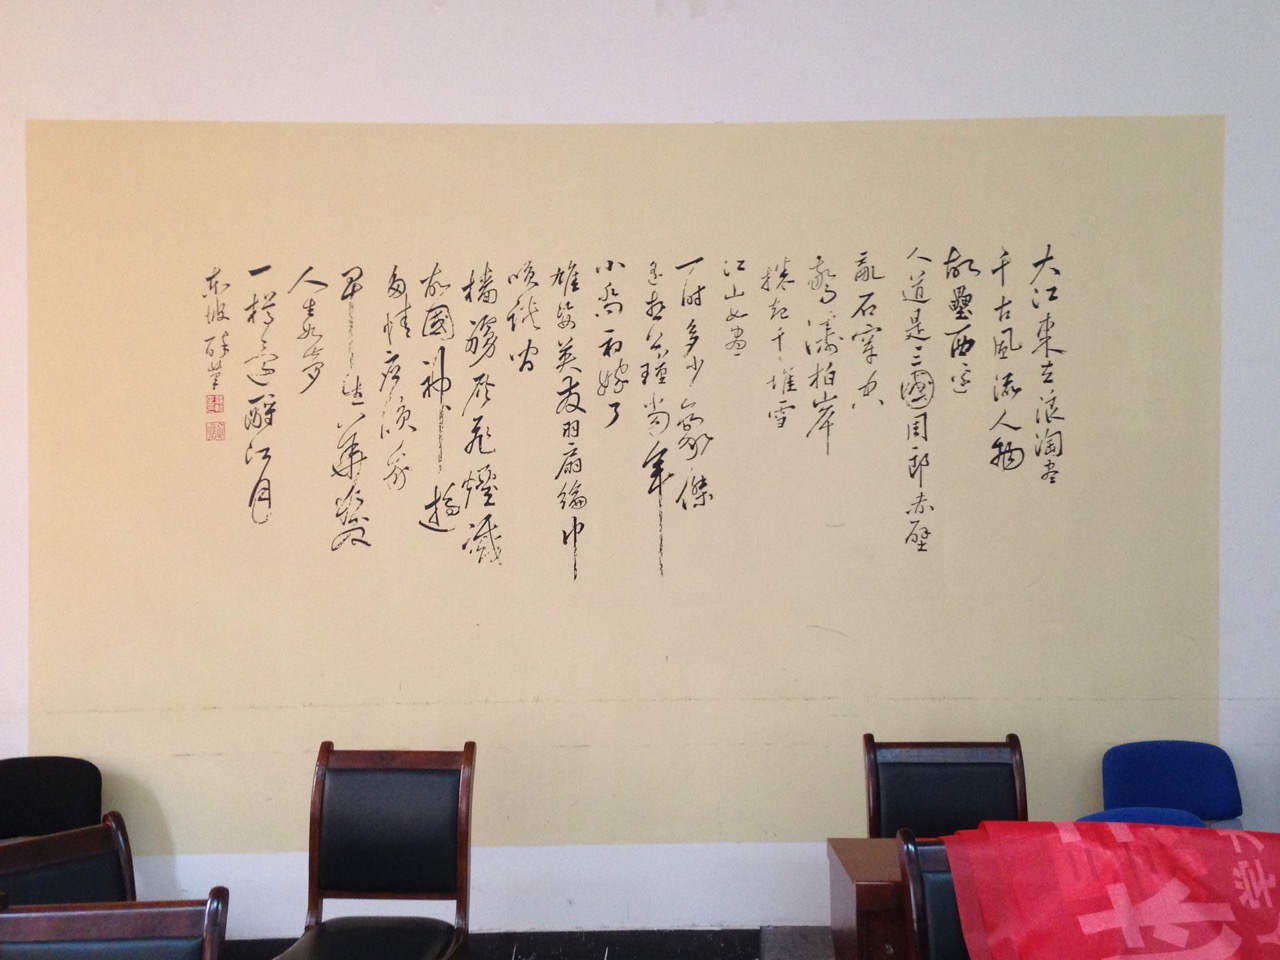 大江東去浪淘盡
千古風流人物
故壘西邊
人道是三國周郎赤壁
亂石穿空
驚濤拍岸
捲起千堆雪
江山如畫
一時多少豪傑
遙想公瑾當年
小喬初嫁了
雄姿英發羽扇綸巾
笑談間
檣櫓灰飛煙滅
故國神遊
多情應笑我
早生華髮
人生如夢
一樽還酹江月
東坡醉筆
学